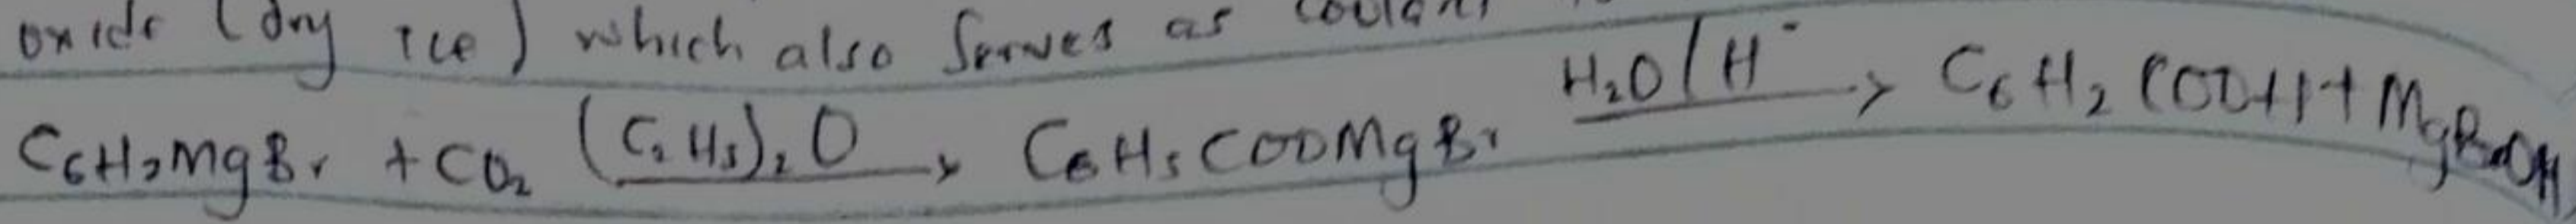 oxide (dry ice) which also serves as coolant
C6H5MgBr + CO2 (C2H5)2O → C6H5COOMgBr H2O/H- → C6H2COOH + MgBrOH